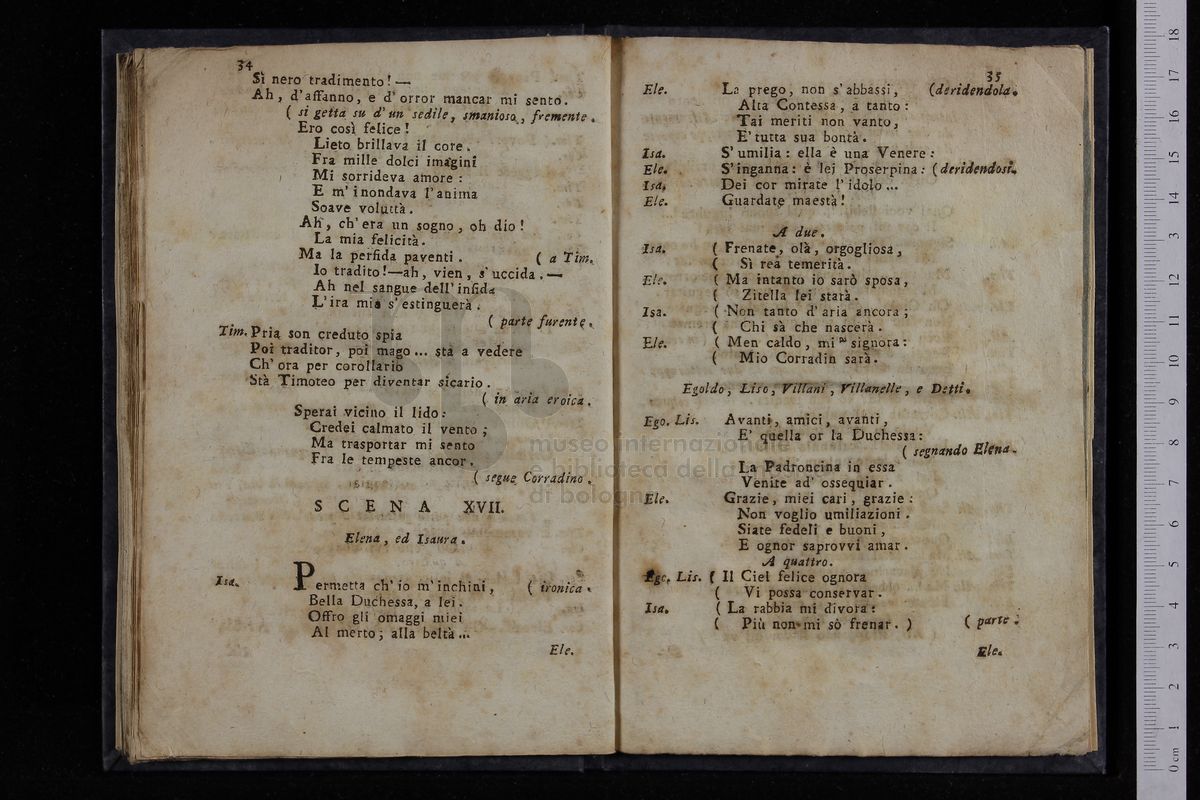 34
Sì nero tradimento! —
Ah, d'affanno, e d'orror mancar mi sento.
( si getta su d'un sedile, smanioso, fremente.
Ero così felice!
Lieto brillava il core.
Fra mille dolci imagini
Mi sorrideva amore:
E m'inondava l'anima
Soave voluttà.
Ah, ch'era un sogno, oh dio!
La mia felicità.
Ma la perfida paventi. ( a Tim.
Io tradito!—ah, vien, s'uccida. —
Ah nel sangue dell'infida
L'ira mia s'estinguerà.
( parte furente.
Tim. Pria son creduto spia
Poi traditor, poi mago... stà a vedere
Ch'ora per corollario
Stà Timoteo per diventar sicario.
( in aria eroica.
Sperai vicino il lido:
Credei calmato il vento;
Ma trasportar mi sento
Fra le tempeste ancor.
( segue Corradino.
SCENA XVII.
Elena, ed Isaura.
Isa. Permetta ch'io m'inchini, ( ironica.
Bella Duchessa, a lei.
Offro gli omaggi miei
Al merto; alla beltà...
Ele.
35
Ele. La prego, non s'abbassi, (deridendola.
Alta Contessa, a tanto:
Tai meriti non vanto,
E' tutta sua bontà.
Isa. S'umilia: ella è una Venere:
Ele. S'inganna: è lei Proserpina: (deridendosi.
Isa. Dei cor mirate l'idolo...
Ele. Guardate maestà!
A due.
Isa. ( Frenate, olà, orgogliosa,
( Sì rea temerità.
Ele. ( Ma intanto io sarò sposa,
( Zitella lei starà.
Isa. ( Non tanto d'aria ancora;
( Chi sà che nascerà.
Ele. ( Men caldo, mia signora:
( Mio Corradin sarà.
Egoldo, Liso, Villani, Villanelle, e Detti.
Ego. Lis. Avanti, amici, avanti,
E' quella or la Duchessa:
( segnando Elena.
La Padroncina in essa
Venite ad' ossequiar.
Ele. Grazie, miei cari, grazie:
Non voglio umiliazioni.
Siate fedeli e buoni,
E ognor saprovvi amar.
A quattro.
Ego. Lis. ( Il Ciel felice ognora
( Vi possa conservar.
Isa. ( La rabbia mi divora:
( Più non mi sò frenar. ) ( parte.
Ele.
museo internazionale
e biblioteca della
di bologna
0 cm 1 2 3 4 5 6 7 8 9 10 11 12 13 14 15 16 17 18